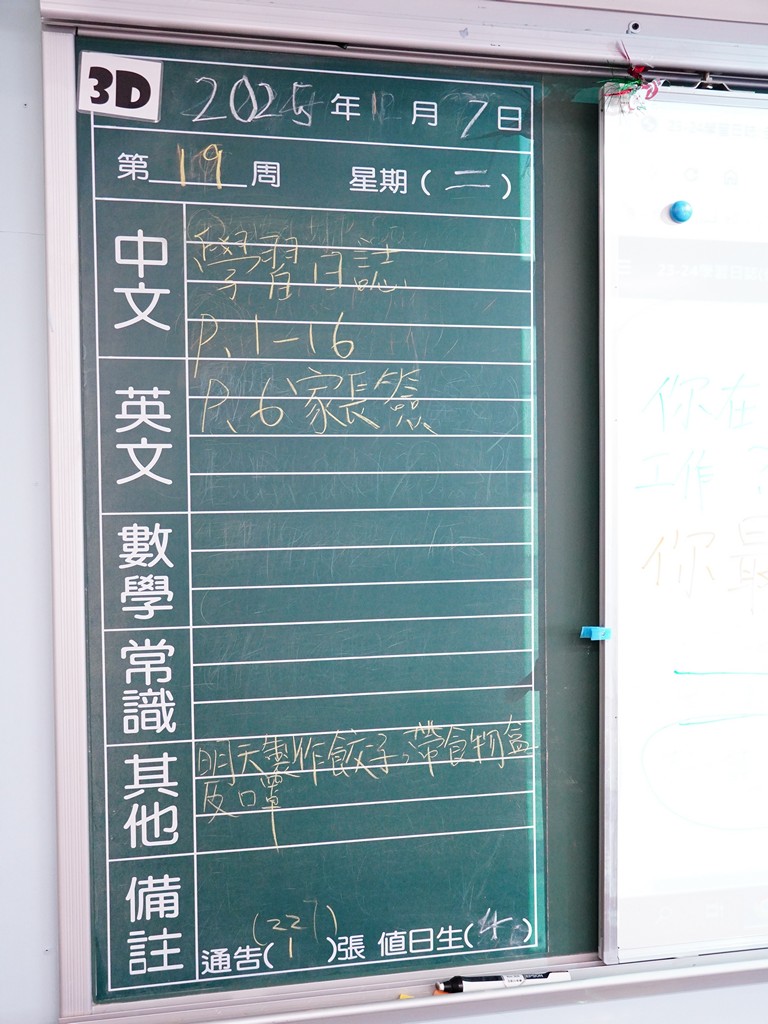 3D
2025年1月7日
第19周 星期(二)
中文
學習日誌
P.1-16
英文
P.6家長簽
數學
常識
其他
明天製作餃子,帶食物盒
及口罩
備註
(227)
通告(1)張 值日生(4)
你在
工作
你最